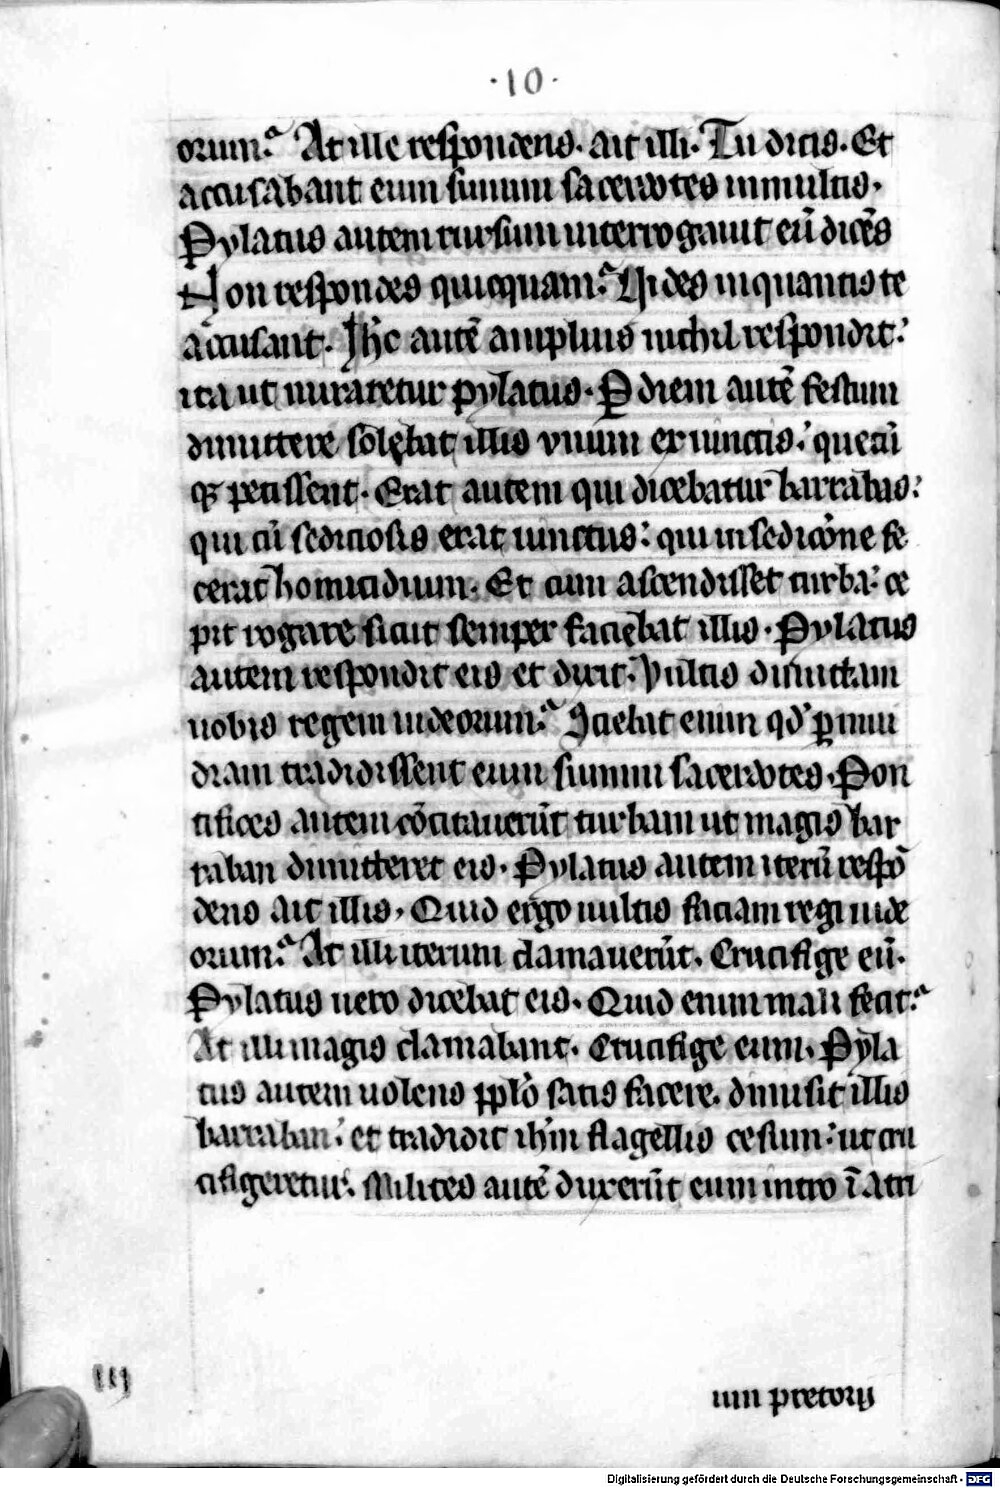 ·10·
orum? At ille respondens. ait illi. Tu dicis. Et
accusabant eum summi sacerdotes in multis.
Pylatus autem rursum interrogauit eū dicēs
Non respondes quicquam? Uides in quantis te
accusant. Ihc autē amplius nichil respondit:
ita ut miraretur pylatus. P diem autē festum
dimittere solebat illis vnum ex iunctis: quecū
qꝫ petissent. Erat autem qui dicebatur barrabas:
qui cū sediciosis erat iunctus: qui in sedicōne fe
cerat homicidium. Et cum ascendisset turba: ce
pit rogare sicut semper faciebat illis. Pylatus
autem respondit eis et dixit. Vultis dimittam
uobis regem iudeorum? Sciebat enim qd' ꝑ inui
diam tradidissent eum summi sacerdotes. Pon
tifices autem cōcitauerūt turbam ut magis bar
raban dimitteret eis. Pylatus autem iterū respō
dens ait illis. Quid ergo uultis faciam regi iude
orum? At illi iterum clamauerūt. Crucifige eū.
Pylatus uero dicebat eis. Quid enim mali fecit?
At illi magis clamabant. Crucifige eum. Pyla
tus autem uolens pplō satis facere. dimisit illis
barraban: et tradidit ihm flagellis cesum: ut cru
cifigeretur. Milites autē duxerūt eum intro ī atri
um pretorij
iij
Digitalisierung gefördert durch die Deutsche Forschungsgemeinschaft - DFG